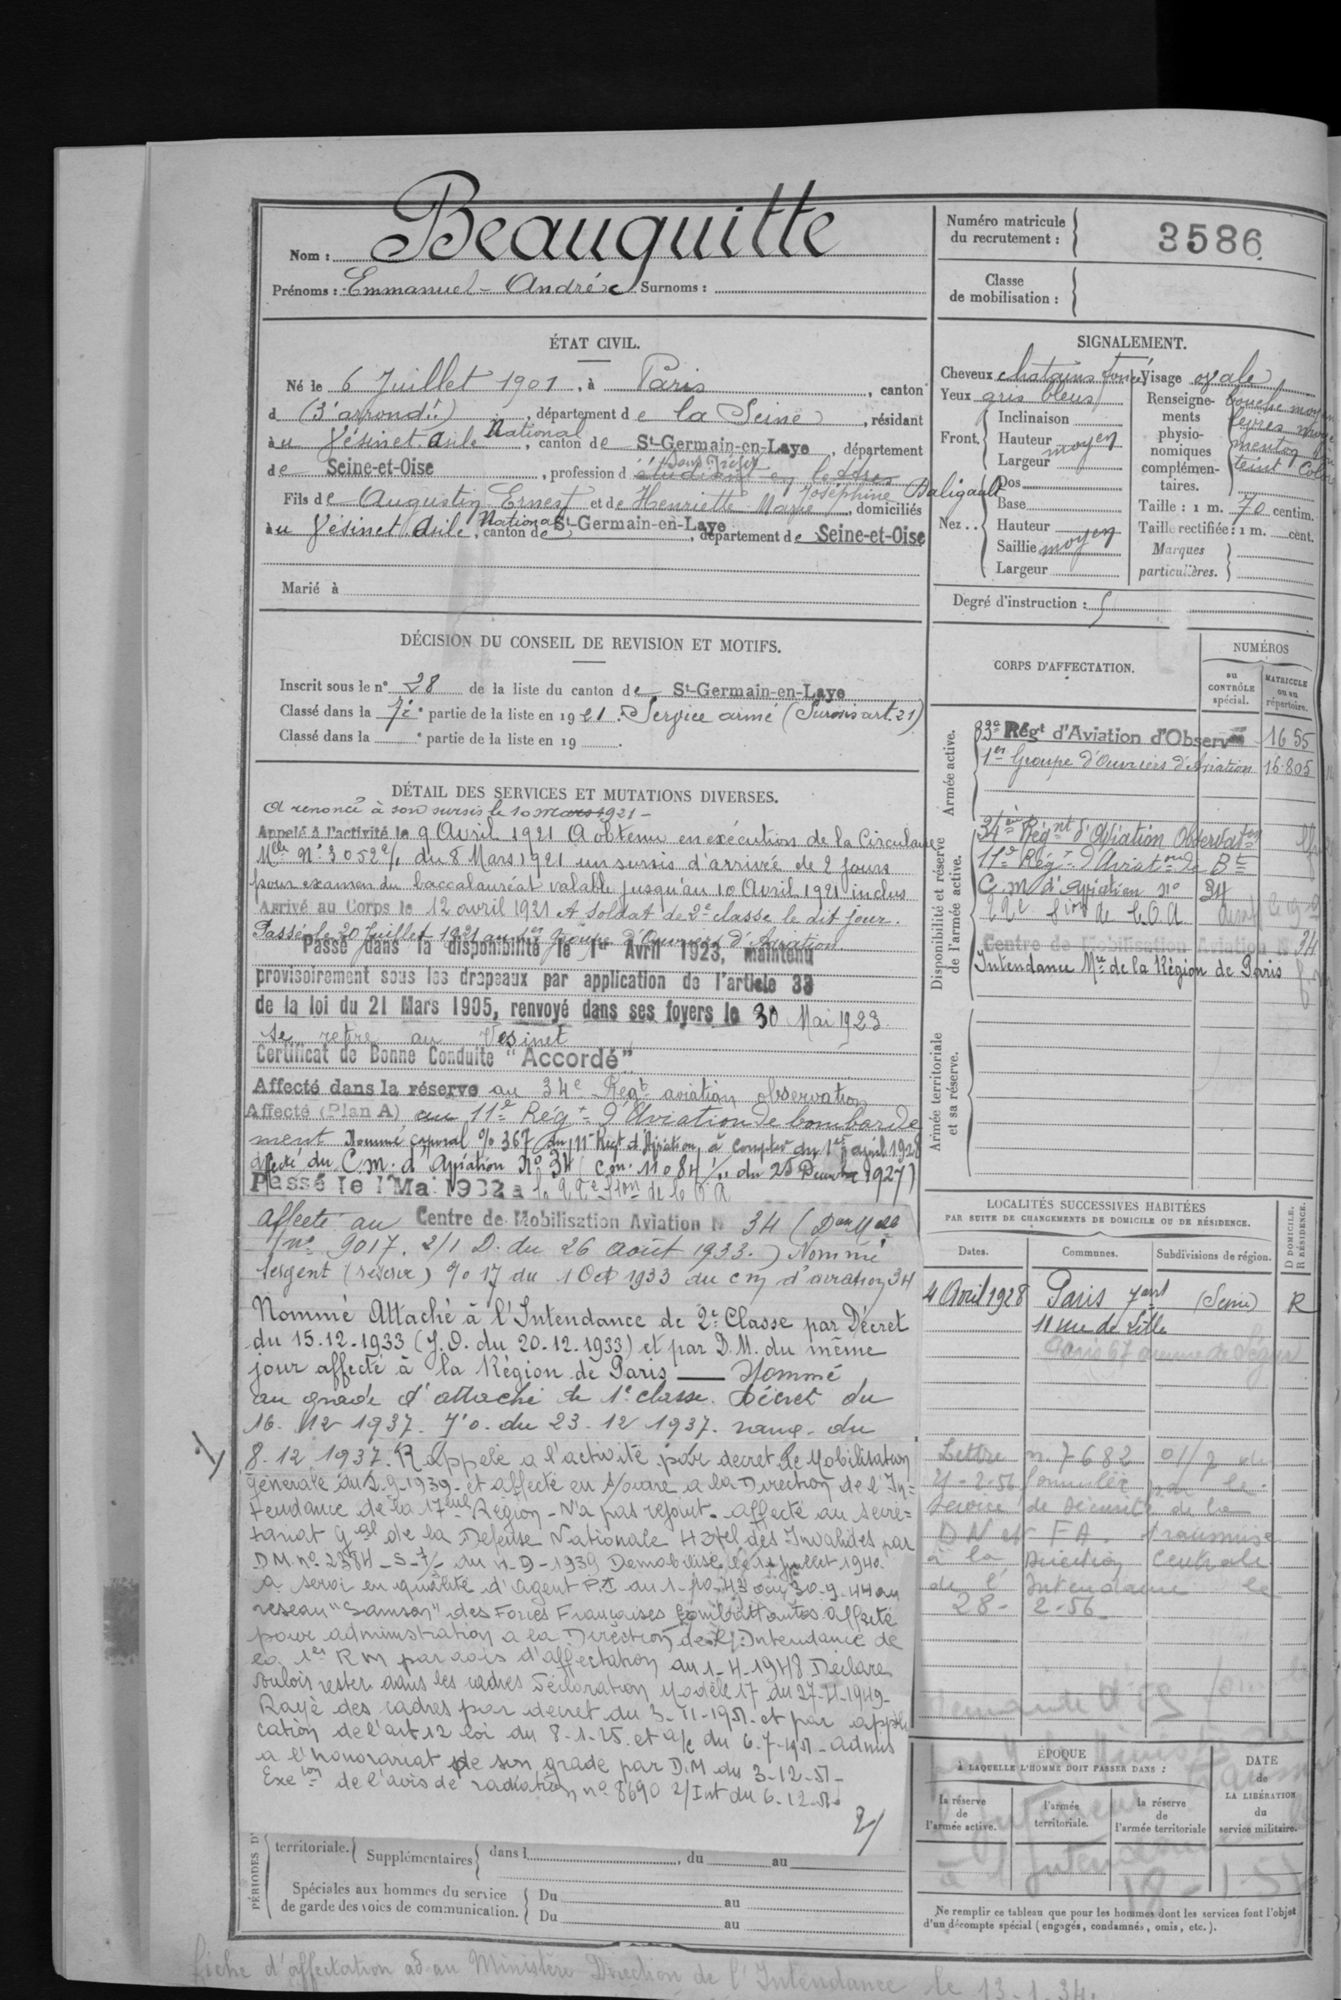 Nom : Beauquitte
Prénoms : Emmanuel - André Surnoms :
Numéro matricule
du recrutement :
3586
Classe
de mobilisation :
ÉTAT CIVIL.
Né le 6 Juillet 1901, à Paris, canton
d (3e arrondt), département de la Seine, résidant
au Vésinet Asile National, canton de St-Germain-en-Laye, département
de Seine-et-Oise, profession d étudiant en lettres
Fils de Augustin Ernest et de Henriette Marie Joséphine Daligault, domiciliés
au Vésinet Asile National, canton de St-Germain-en-Laye, département de Seine-et-Oise
Marié à
SIGNALEMENT.
Cheveux chatains foncé Visage ovale
Yeux gris bleus
Front. Inclinaison
Hauteur moyen
Largeur
Nez.. Dos
Base
Hauteur
Saillie moyen
Largeur
Renseigne-
ments
physio-
nomiques
complémen-
taires.
bouche
menton
teint
Taille : 1 m. 70 centim.
Taille rectifiée : 1 m. cent.
Marques
particulières.
Degré d'instruction : 5
DÉCISION DU CONSEIL DE REVISION ET MOTIFS.
Inscrit sous le n° 28 de la liste du canton de St-Germain-en-Laye
Classé dans la partie de la liste en 1921. Service armé (Sursis art. 21)
Classé dans la e partie de la liste en 19 .
DÉTAIL DES SERVICES ET MUTATIONS DIVERSES.
A renoncé à son sursis le 10 mars 1921 -
Appelé à l'activité le 9 Avril 1921 A obtenu en exécution de la Circulaire
Mlle N° 3052 du 8 Mars 1921 un sursis d'arrivée de 2 jours
pour examen du baccalauréat valable jusqu'au 10 Avril 1921 inclus
Arrivé au Corps le 12 avril 1921 et soldat de 2e classe le dit jour.
Passé le 20 Juillet 1921 au 1er Groupe d'Ouvriers d'Aviation
Passé dans la disponibilité le 1er Avril 1923, maintenu
provisoirement sous les drapeaux par application de l'article 33
de la loi du 21 Mars 1905, renvoyé dans ses foyers le 30 Mai 1923.
se retire au Vésinet
Certificat de Bonne Conduite "Accordé"
Affecté dans la réserve au 34e Régt aviation observation
Affecté (Plan A) au 11e Régt d'Aviation de bombarde
ment Nommé caporal % 367 du 11e Regt d'Aviation à compter du 1er avril 1928
affecté du C.m. d'Aviation N° 34 (Con. 11084 du 25 Décembre 1927)
Passé le 1 Mai 1932 à la 22e Sion de C.O.A
affecté au Centre de Mobilisation Aviation N° 34 (
n° 9017. 2/1 D. du 26 août 1933.) Nommé
sergent (réserve) % 17 du 1 Oct 1933 du cm d'aviation 34
Nommé Attaché à l'Intendance de 2e Classe par Décret
du 15.12.1933 (J.O. du 20.12.1933) et par D.M. du même
jour affecté à la Région de Paris — Nommé
au grade d'attaché de 1e classe. Décret du
16. 12 1937. J.O. du 23. 12 1937. rang du
8. 12 1937. Rappelé a l'activité par decret de Mobilisation
Generale du 2.9.1939 et affecté en a la Direction de l'In=
tendance de la 17eme Region - N'a pas rejoint. affecté au secré=
tariat Ggal de la Defense Nationale Hotel des Invalides par
DM n° 2384 - S du 4-9-1939 Demobilisé le juillet 1940.
a servi en qualité d'agent P1 du 1-10-43 au 30-9-44 au
reseau "Samson" des Forces Françaises Combattantes affecté
pour administration a la Direction de l'Intendance de
la 1er RM par avis d'affectation du 1-4-1948 Declare
vouloir rester dans les cadres Déclaration Modèle 17 du 27-4-1949-
Rayé des cadres par decret du 3-11-1951 et par appli
cation de l'art 12 loi du 8-1-25. et a/c du 6-7-1951 - admis
a l'honorariat de son grade par D.M du 3-12-51-
Exeion de l'avis de radiation n° 8690 2/Int du 6-12-51
CORPS D'AFFECTATION.
NUMÉROS
au
CONTRÔLE
spécial.
MATRICULE
ou au
répertoire.
Armée active.
33e Régt d'Aviation d'Observ 1655
1er Groupe d'Ouvriers d'Aviation 16.805
Disponibilité et réserve
de l'armée active.
34e Régnt d'Aviation Observation
11e Régt d'Aviaton de Bt
C.m. d'Aviation n° 34
22e Sion de C.O.A
Centre de Mobilisation Aviation N° 34
Intendance Mre de la Région de Paris
Armée territoriale
et sa réserve.
LOCALITÉS SUCCESSIVES HABITÉES
PAR SUITE DE CHANGEMENTS DE DOMICILE OU DE RÉSIDENCE.
D DOMICILE.
R RÉSIDENCE.
Dates. Communes. Subdivisions de région.
4 Avril 1928 Paris 7arrt (Seine) R
11 rue de Lille
Paris 67 avenue de Ségur
Lettre n. 7682
2-56 formulée par le
Service de Sécurité de la
D N et F A. transmise
à la Direction Centrale
de l'Intendance le
28- 2-56
ÉPOQUE
À LAQUELLE L'HOMME DOIT PASSER DANS :
la réserve
de
l'armée active.
l'armée
territoriale.
la réserve
de
l'armée territoriale
DATE
de
LA LIBÉRATION
du
service militaire.
Ne remplir ce tableau que pour les hommes dont les services font l'objet
d'un décompte spécial (engagés, condamnés, omis, etc.).
PÉRIODES D'
territoriale. Supplémentaires dans l , du au
Spéciales aux hommes du service
de garde des voies de communication.
Du au
Du au
fiche d'affectation ad. au Ministère Direction de l'Intendance le 13-1-34.